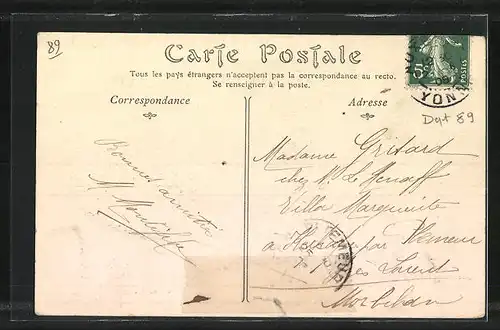 89
Carte Postale
Tous les pays étrangers n'acceptent pas la correspondance au recto.
Se renseigner à la poste.
Correspondance
Adresse
5c
POSTES
YONNE
Dpt 89
Bonnes amitiés
M.
Madame Grisard
chez Mr Le Henaff
Villa Marguerite
à par Plemeur
près Lorient
Morbihan
PLEMEUR